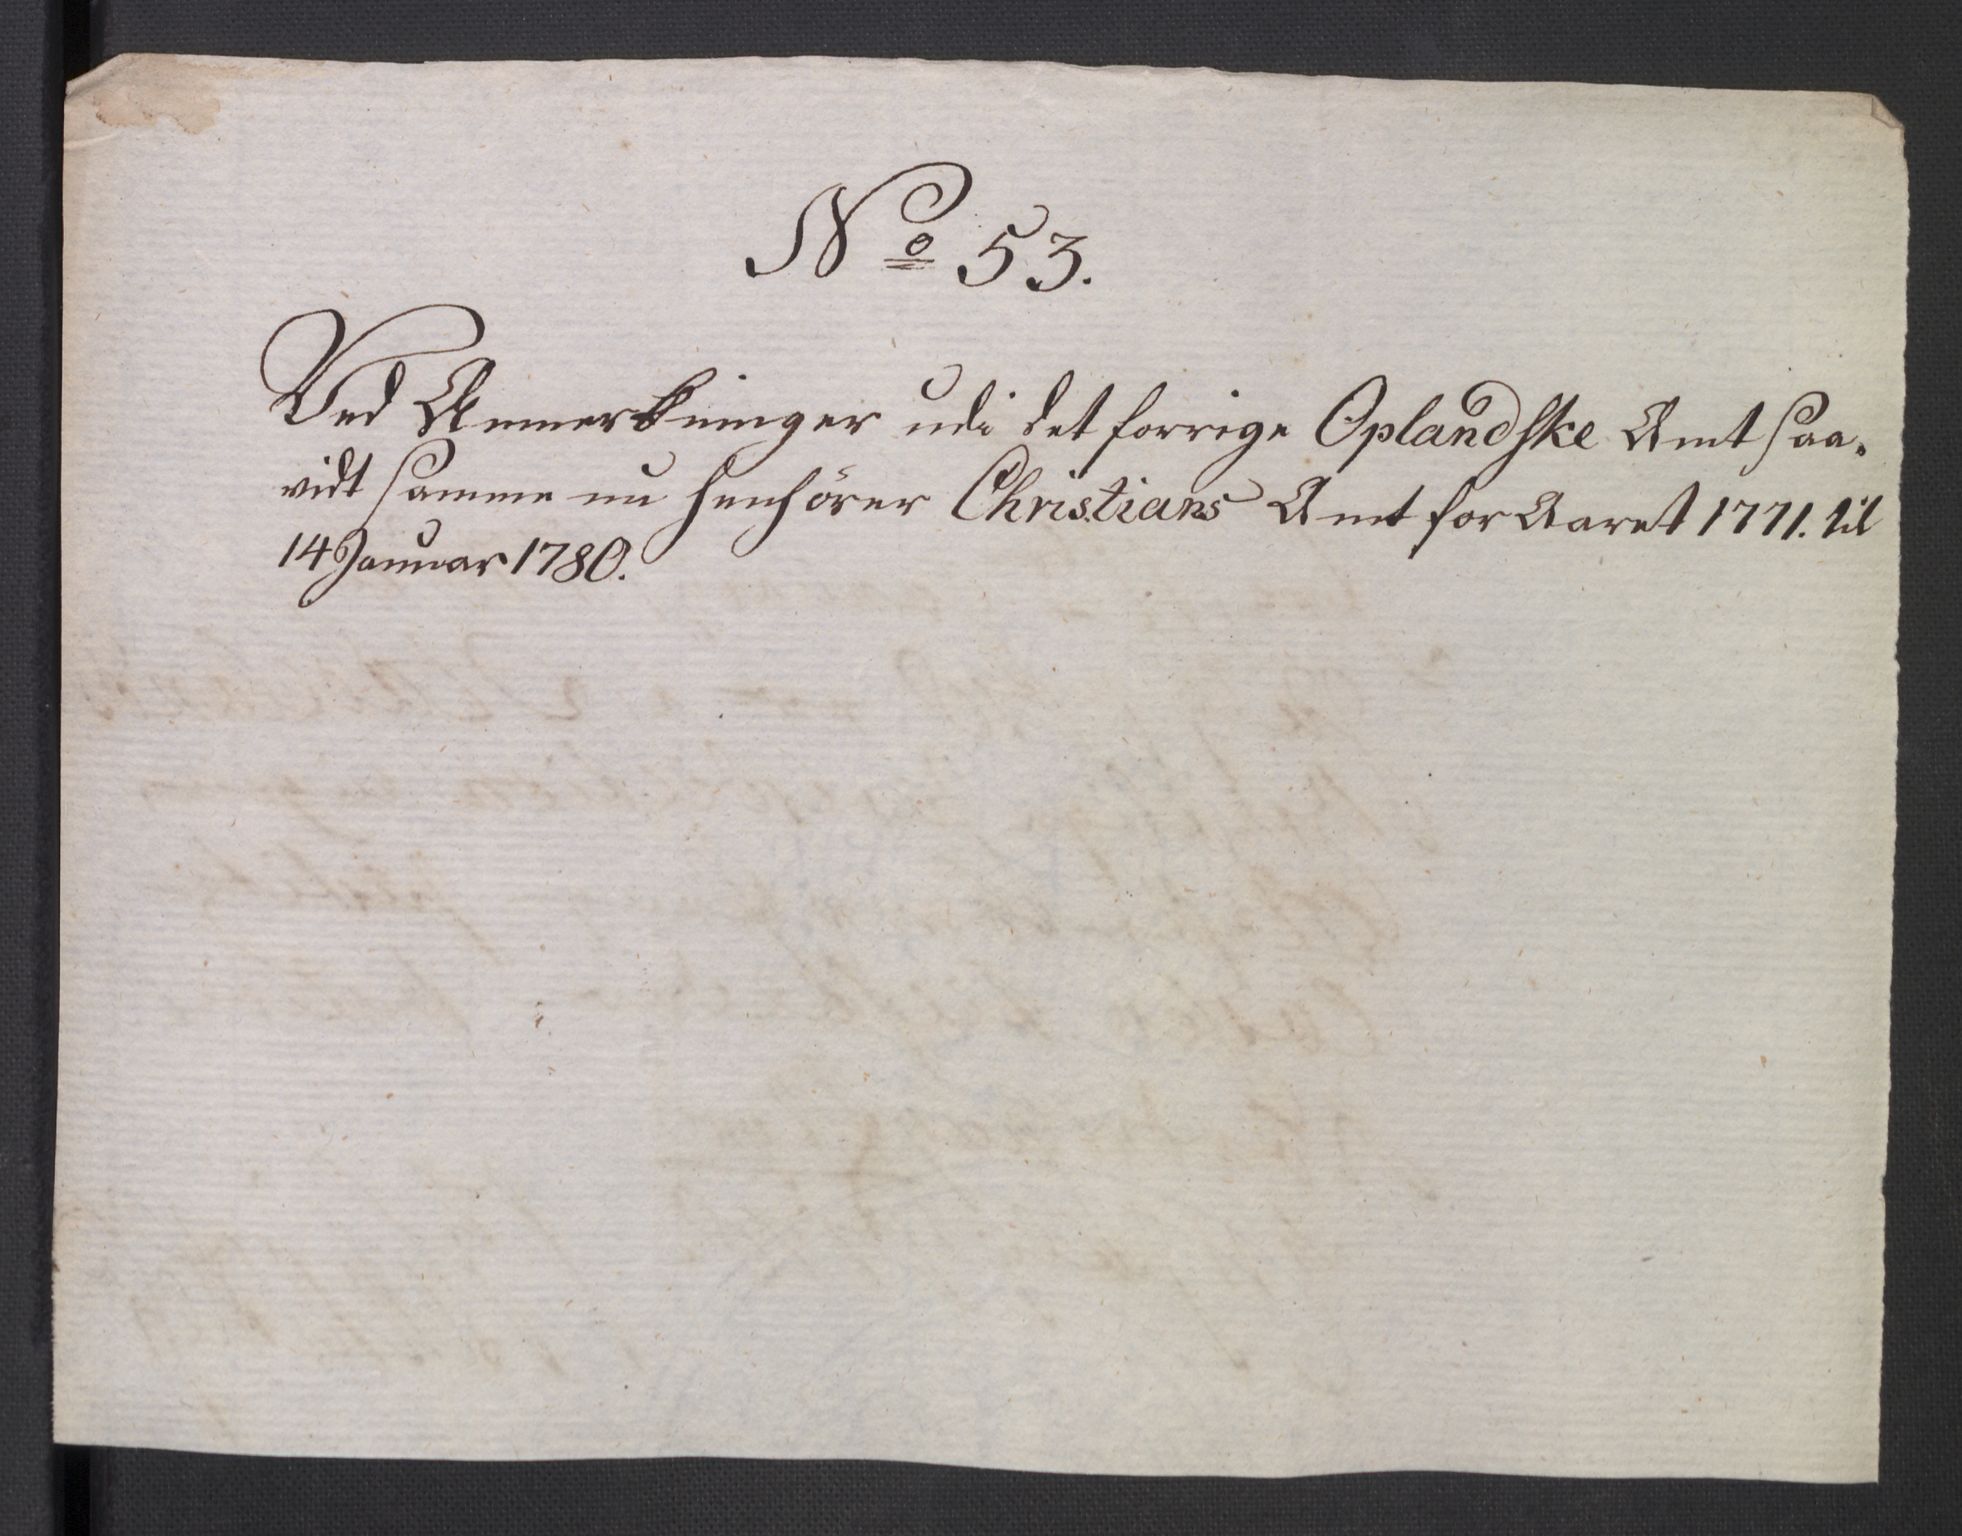 No 53.
Ved Anmerkninger udi det forrige Oplandske Amt saa-
vidt samme nu henhörer Christians Amt for Aaret 1771. til
14 Januar 1780.